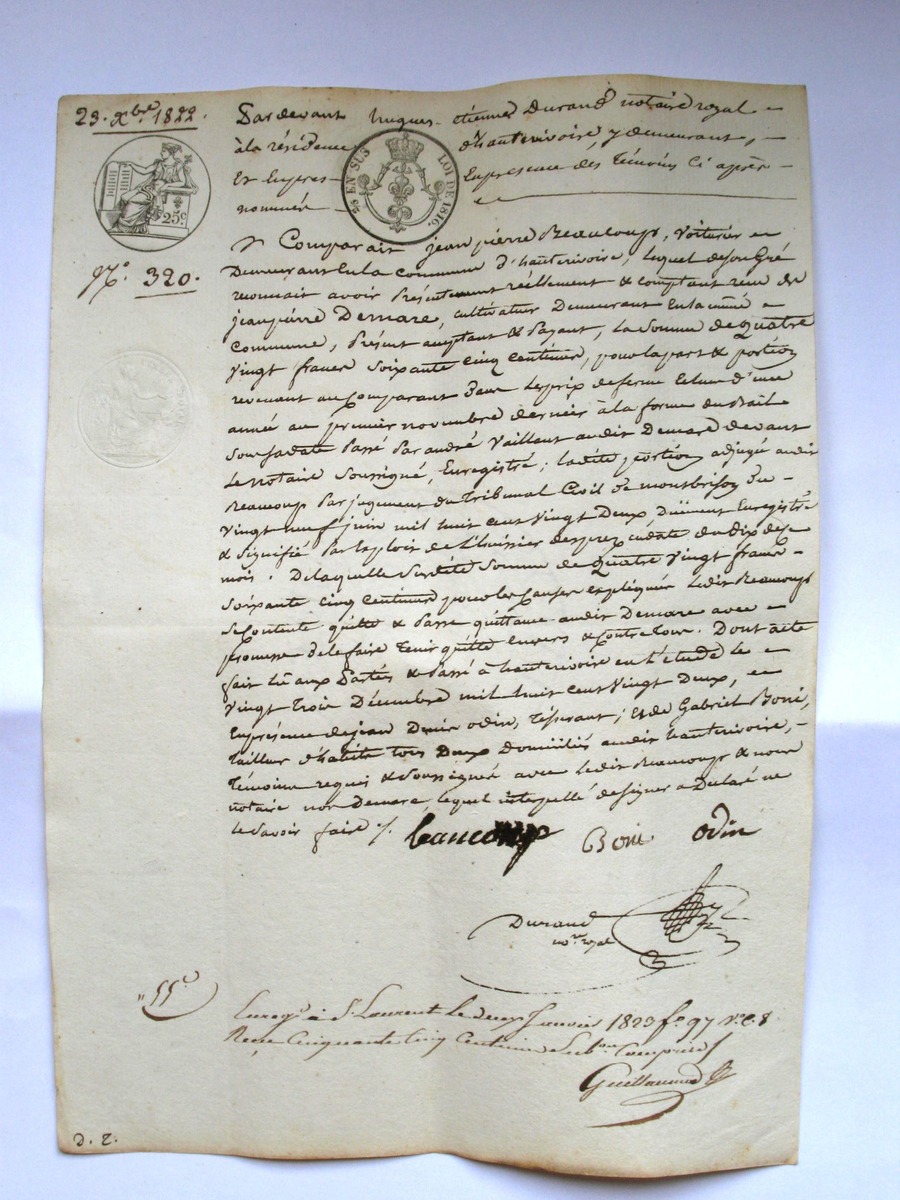 23. Xbre 1822.
Pardevant hugues étienne Durand notaire royal
à la résidence d'hauterivoire, y demeurant,
Et En présence des témoins Ci après
nommés
25c.
25 EN SUS LOI DE 1816.
No. 320.
Comparait jean pierre Beaucoup, voiturier
Demeurant En la commune d'hauterivoire, lequel de son Gré
reconnait avoir Présentement réellement & comptant reçu de
jean pierre Demare, cultivateur Demeurant En la même
commune, Présent acceptant & Payant, la somme de quatre
vingt francs soixante cinq centimes, pour la part & portion
revenant au Comparant dans le prix de ferme d'une
année au premier novembre dernier à la forme du Bail
Sous sa date Passé Par andré Vaillant audit Demare devant
Le notaire Soussigné, Enregistré; ladite portion adjugé audit
Beaucoup Par jugement du Tribunal Civil de montbrison du
vingt neuf juin mil huit cent vingt Deux Duëment Enregistré
& signifié Par Exploit de L'huissier Desprez en date du dix de ce
mois. De laquelle Susdite Somme de Quatre vingt francs
soixante cinq centimes pour les causes expliquées Ledit Beaucoup
Se Contente quitte & Passe quittance audit Demare avec
promesse de le faire tenir quitte Envers & Contre tous. Dont acte
fait lû aux Parties & Passé à hauterivoire en L'étude le
vingt trois Décembre mil huit cent vingt Deux,
En présence de jean Denis odin, tisserant; Et de Gabriel Boni,
tailleur d'habits tous Deux Domiciliés audit hauterivoire,
témoins requis & Soussignés avec Ledit Beaucoup & nous
notaire non Demare, lequel interpellé de signer a Déclaré ne
le savoir faire ./.
beaucoup Boni odin
Durand
nore royal
"55c
Enregé à St Laurent Le deux Janvier 1823 fo 97 Vo C. 8
Reçu Cinquante Cinq Centimes Subon Comprise
Guillaume
D. E.